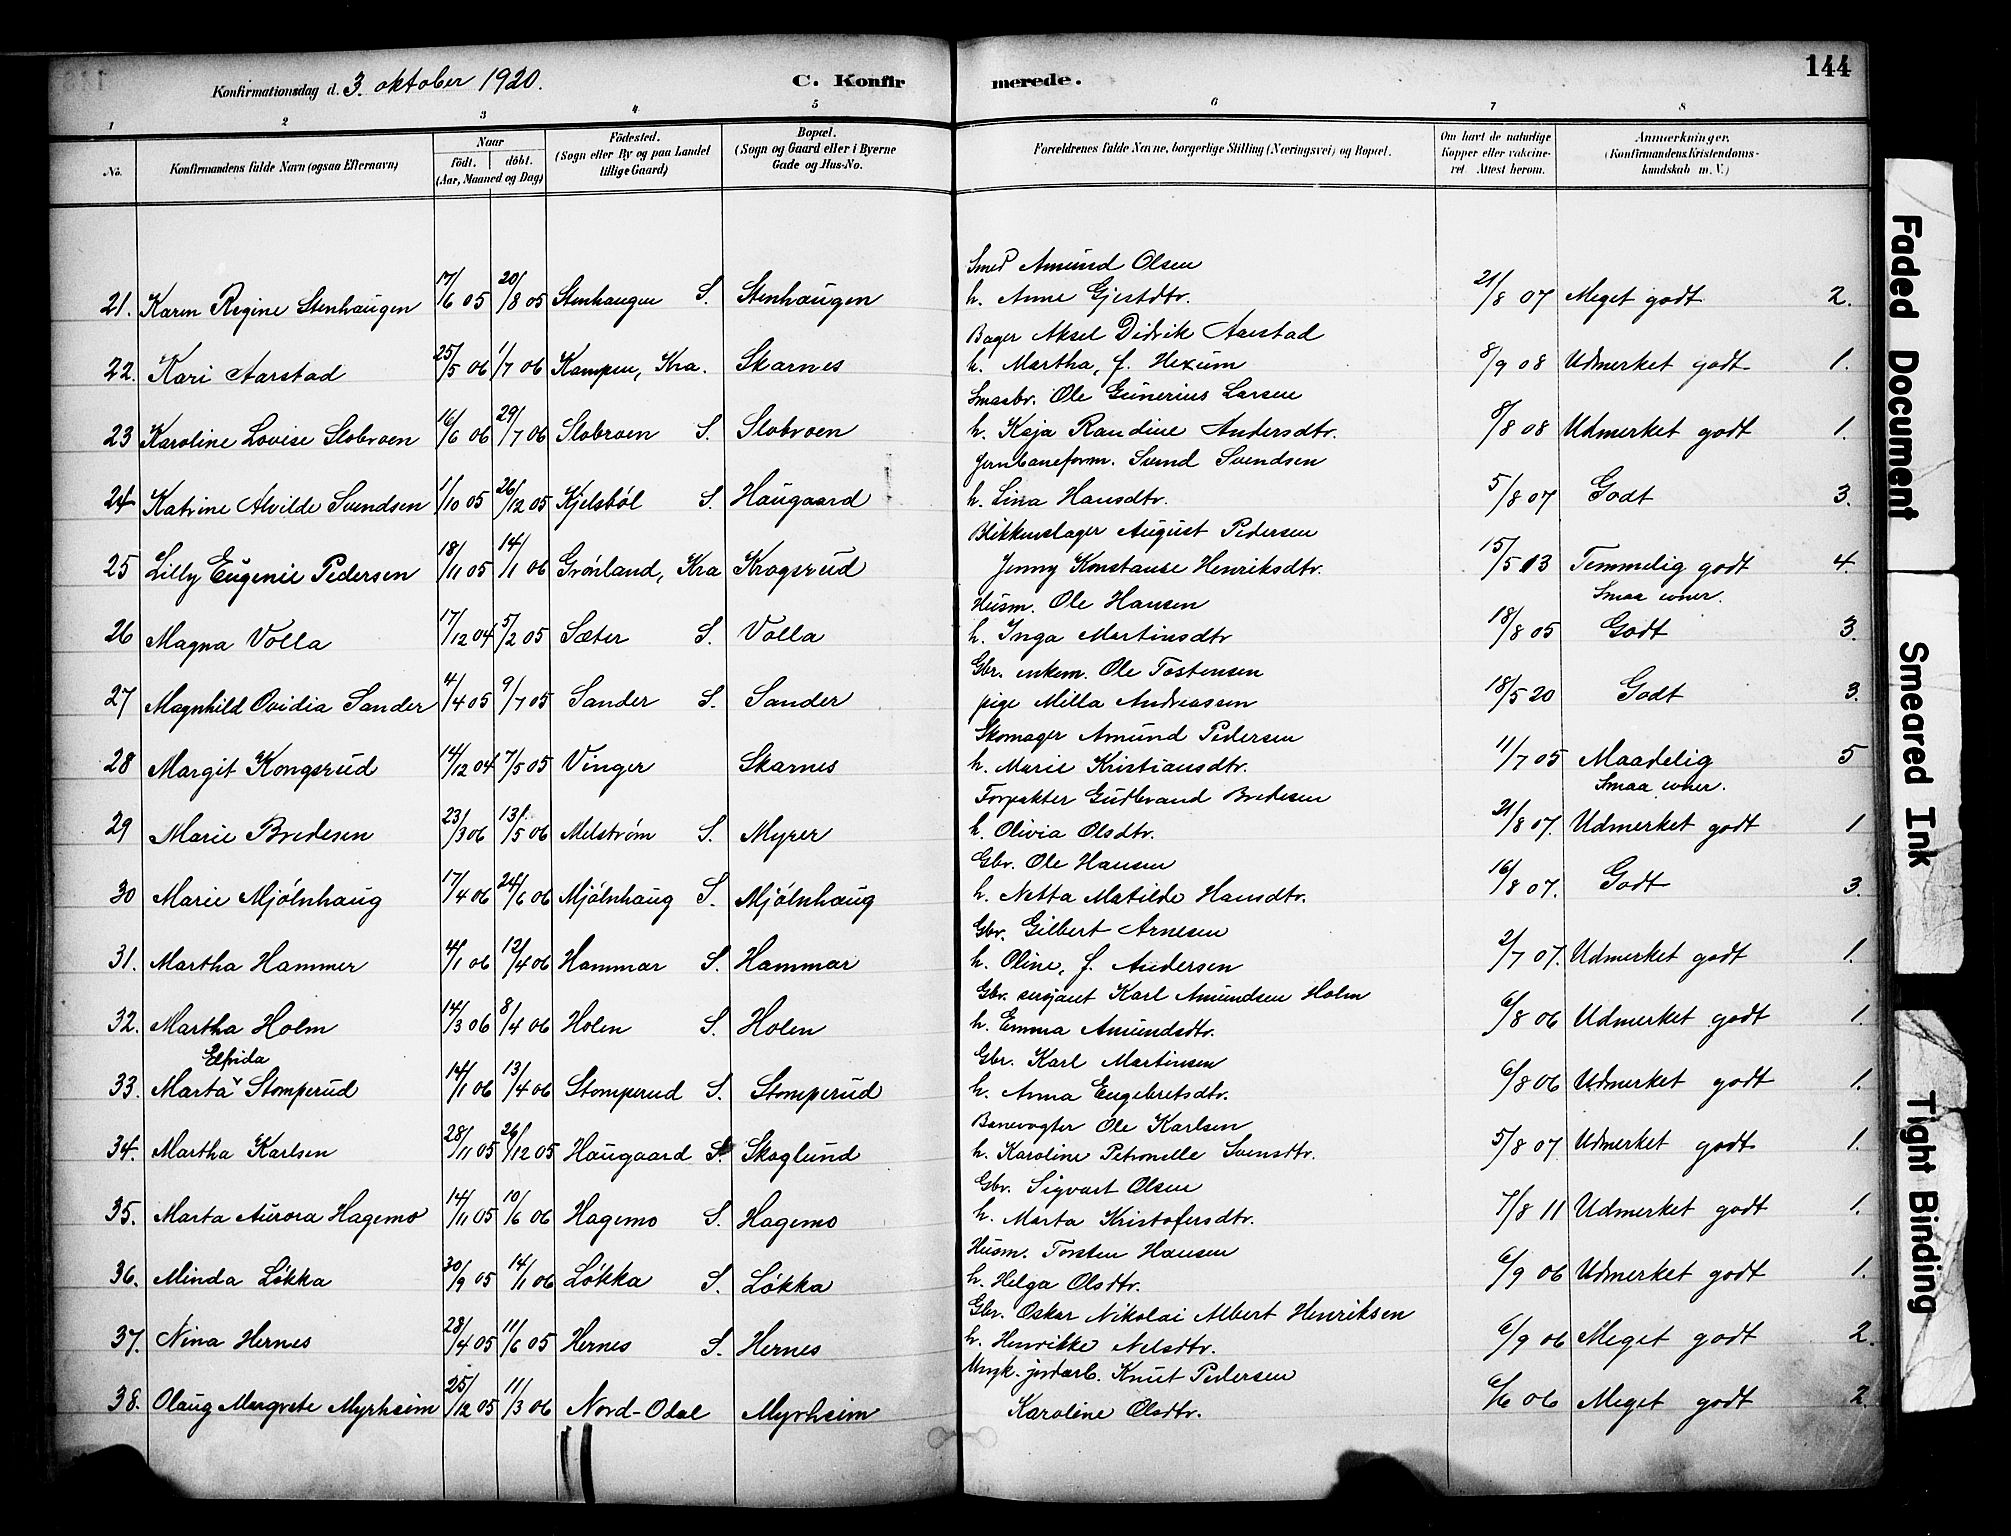 144
Konfirmationsdag d. 3. oktober 1920. C. Konfirmerede.
1 2 3 4 5 6 7 8
No. Konfirmandens fulde Navn (ogsaa Efternavn) Naar født. døbt. (Aar, Maaned og Dag) Födested. (Sogn eller By og paa Landet tillige Gaard) Bopæl. (Sogn og Gaard eller i Byerne Gade og Hus-No. Forældrenes fulde Navne, borgerlige Stilling (Næringsvei) og Bopæl. Om havt de naturlige Kopper eller vakcineret. Attest herom. Anmærkninger. (Konfirmandens Kristendomskundskab m. V.)
Smed Amund Olsen
21. Karen Regine Stenhaugen 17/6 05 20/8 05 Stenhaugen S. Stenhaugen h. Anne Gjestdtr. 21/8 07 Meget godt 2.
Bager Aksel Didrik Aarstad
22. Kari Aarstad 25/5 06 1/7 06 Kampen, Kra. Skarnes h. Martha, f. Hexum 8/9 08 Udmerket godt 1.
Smaabr. Ole Gunerius Larsen
23 Karoline Lovise Slobroen 16/6 06 29/7 06 Slobroen S. Slobroen h. Kaja Randine Andersdtr. 8/8 08 Udmerket godt 1.
Jernbaneform. Svend Svendsen
24 Katrine Alvilde Svendsen 1/10 05 26/12 05 Kjelsböl S. Haugaard h. Lina Hansdtr. 5/8 07 Godt 3.
Blikkenslager August Pedersen
25 Lilly Eugenie Pedersen 18/11 05 14/1 06 Grønland, Kra Krogsrud Jenny Konstanse Henriksdtr. 15/5 13 Temmelig godt 4.
Smaa evner.
Husm. Ole Hansen
26 Magna Volla 17/12 04 5/2 05 Sæter S. Volla h. Inga Martinsdtr 18/8 05 Godt 3.
Gbr. enkem. Ole Tostensen
27 Magnhild Ovidia Sander 4/4 05 9/7 05 Sander S. Sander pige Milla Andreassen 18/5 20 Godt 3.
Skomager Amund Pedersen
28 Margit Kongsrud 14/12 04 7/5 05 Vinger Skarnes h. Marie Kristiansdtr. 11/7 05 Maadelig 5
Smaa evner.
Forpakter Gudbrand Bredesen
29 Marie Bredesen 23/3 06 13/5 06 Melstrøm S. Myrer h. Olivia Olsdtr. 21/8 07. Udmerket godt 1
Gbr. Ole Hansen
30 Marie Mjølnhaug 17/4 06 24/6 06 Mjølnhaug S. Mjølnhaug h. Netta Matilde Hansdtr. 16/8 07. Godt 3.
Gbr. Gilbert Arnesen
31. Martha Hammer 4/1 06 12/4 06 Hammar S. Hammar h. Oline, f. Andersen 2/7 07. Udmerket godt 1.
Gbr. sersjant Karl Amundsen Holm
32. Martha Holm 14/3 06 8/4 06 Holen S. Holen h. Emma Amundsdtr. 6/8 06 Udmerket godt 1.
Elfrida
Gbr. Karl Martinsen
33. Marta Stomperud 14/1 06 13/4 06 Stomperud S. Stomperud h. Anna Engebretsdtr. 6/8 06 Udmerket godt 1.
Banevogter Ole Karlsen
34. Martha Karlsen 28/11 05 26/12 05 Haugaard S. Skoglund h. Karoline Petronelle Svensdtr. 5/8 07 Udmerket godt 1.
Gbr. Sigvart Olsen
35. Marta Aurora Hagemo 14/11 05 10/6 06 Hagemo S. Hagemo h. Marta Kristofersdtr. 7/8 11 Udmerket godt 1.
Husm. Torsten Hansen
36. Minda Løkka 20/9 05 14/1 06 Løkka S. Løkka h. Helga Olsdtr. 6/9 06 Udmerket godt 1.
Gbr. Oskar Nikolai Albert Henriksen
37. Nina Hernes 28/4 05 11/6 05 Hernes S. Hernes h. Henrikke Nelsdtr. 6/9 06 Meget godt 2.
jordarb. Knut Pedersen
38. Olaug Margrete Myrheim 25/12 05 11/3 06 Nord-Odal Myrheim Karoline Olsdtr. 6/6 06 Meget godt 2.
Faded Document
Smeared Ink
Tight Binding